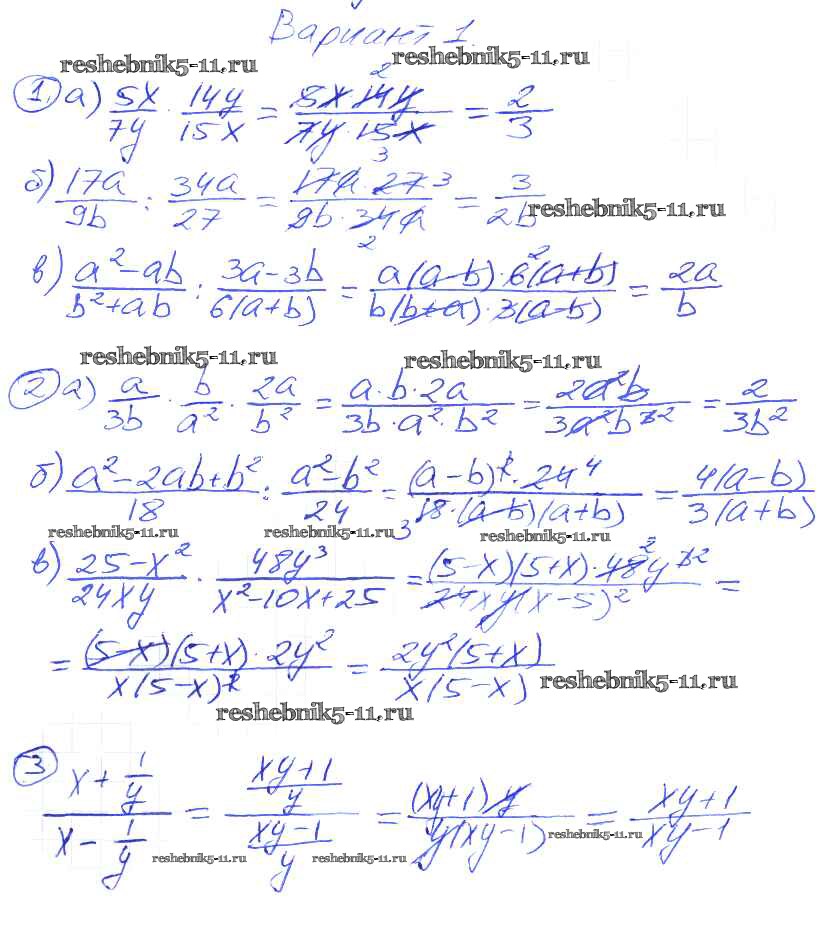 Вариант 1.
reshebnik5-11.ru reshebnik5-11.ru
① а) 5x/7y · 14y/15x = 5x·14y/7y·15x = 2/3
2
3
б) 17a/9b : 34a/27 = 17a·27/9b·34a = 3/2b
3
2
reshebnik5-11.ru
в) a²-ab/b²+ab : 3a-3b/6(a+b) = a(a-b)·6(a+b)/b(b+a)·3(a-b) = 2a/b
2
reshebnik5-11.ru reshebnik5-11.ru
② а) a/3b · b/a² · 2a/b² = a·b·2a/3b·a²·b² = 2a²b/3a²b³ = 2/3b²
2
б) a²-2ab+b²/18 : a²-b²/24 = (a-b)²·24/18·(a-b)(a+b) = 4(a-b)/3(a+b)
4
3
reshebnik5-11.ru reshebnik5-11.ru reshebnik5-11.ru
в) 25-x²/24xy · 48y³/x²-10x+25 = (5-x)(5+x)·48y³/24xy(x-5)² =
2 2
= (5-x)(5+x)·2y²/x(5-x)² = 2y²(5+x)/x(5-x)
reshebnik5-11.ru
reshebnik5-11.ru
③ x+1/y / x-1/y = xy+1/y / xy-1/y = (xy+1)y/y(xy-1) = xy+1/xy-1
reshebnik5-11.ru reshebnik5-11.ru reshebnik5-11.ru